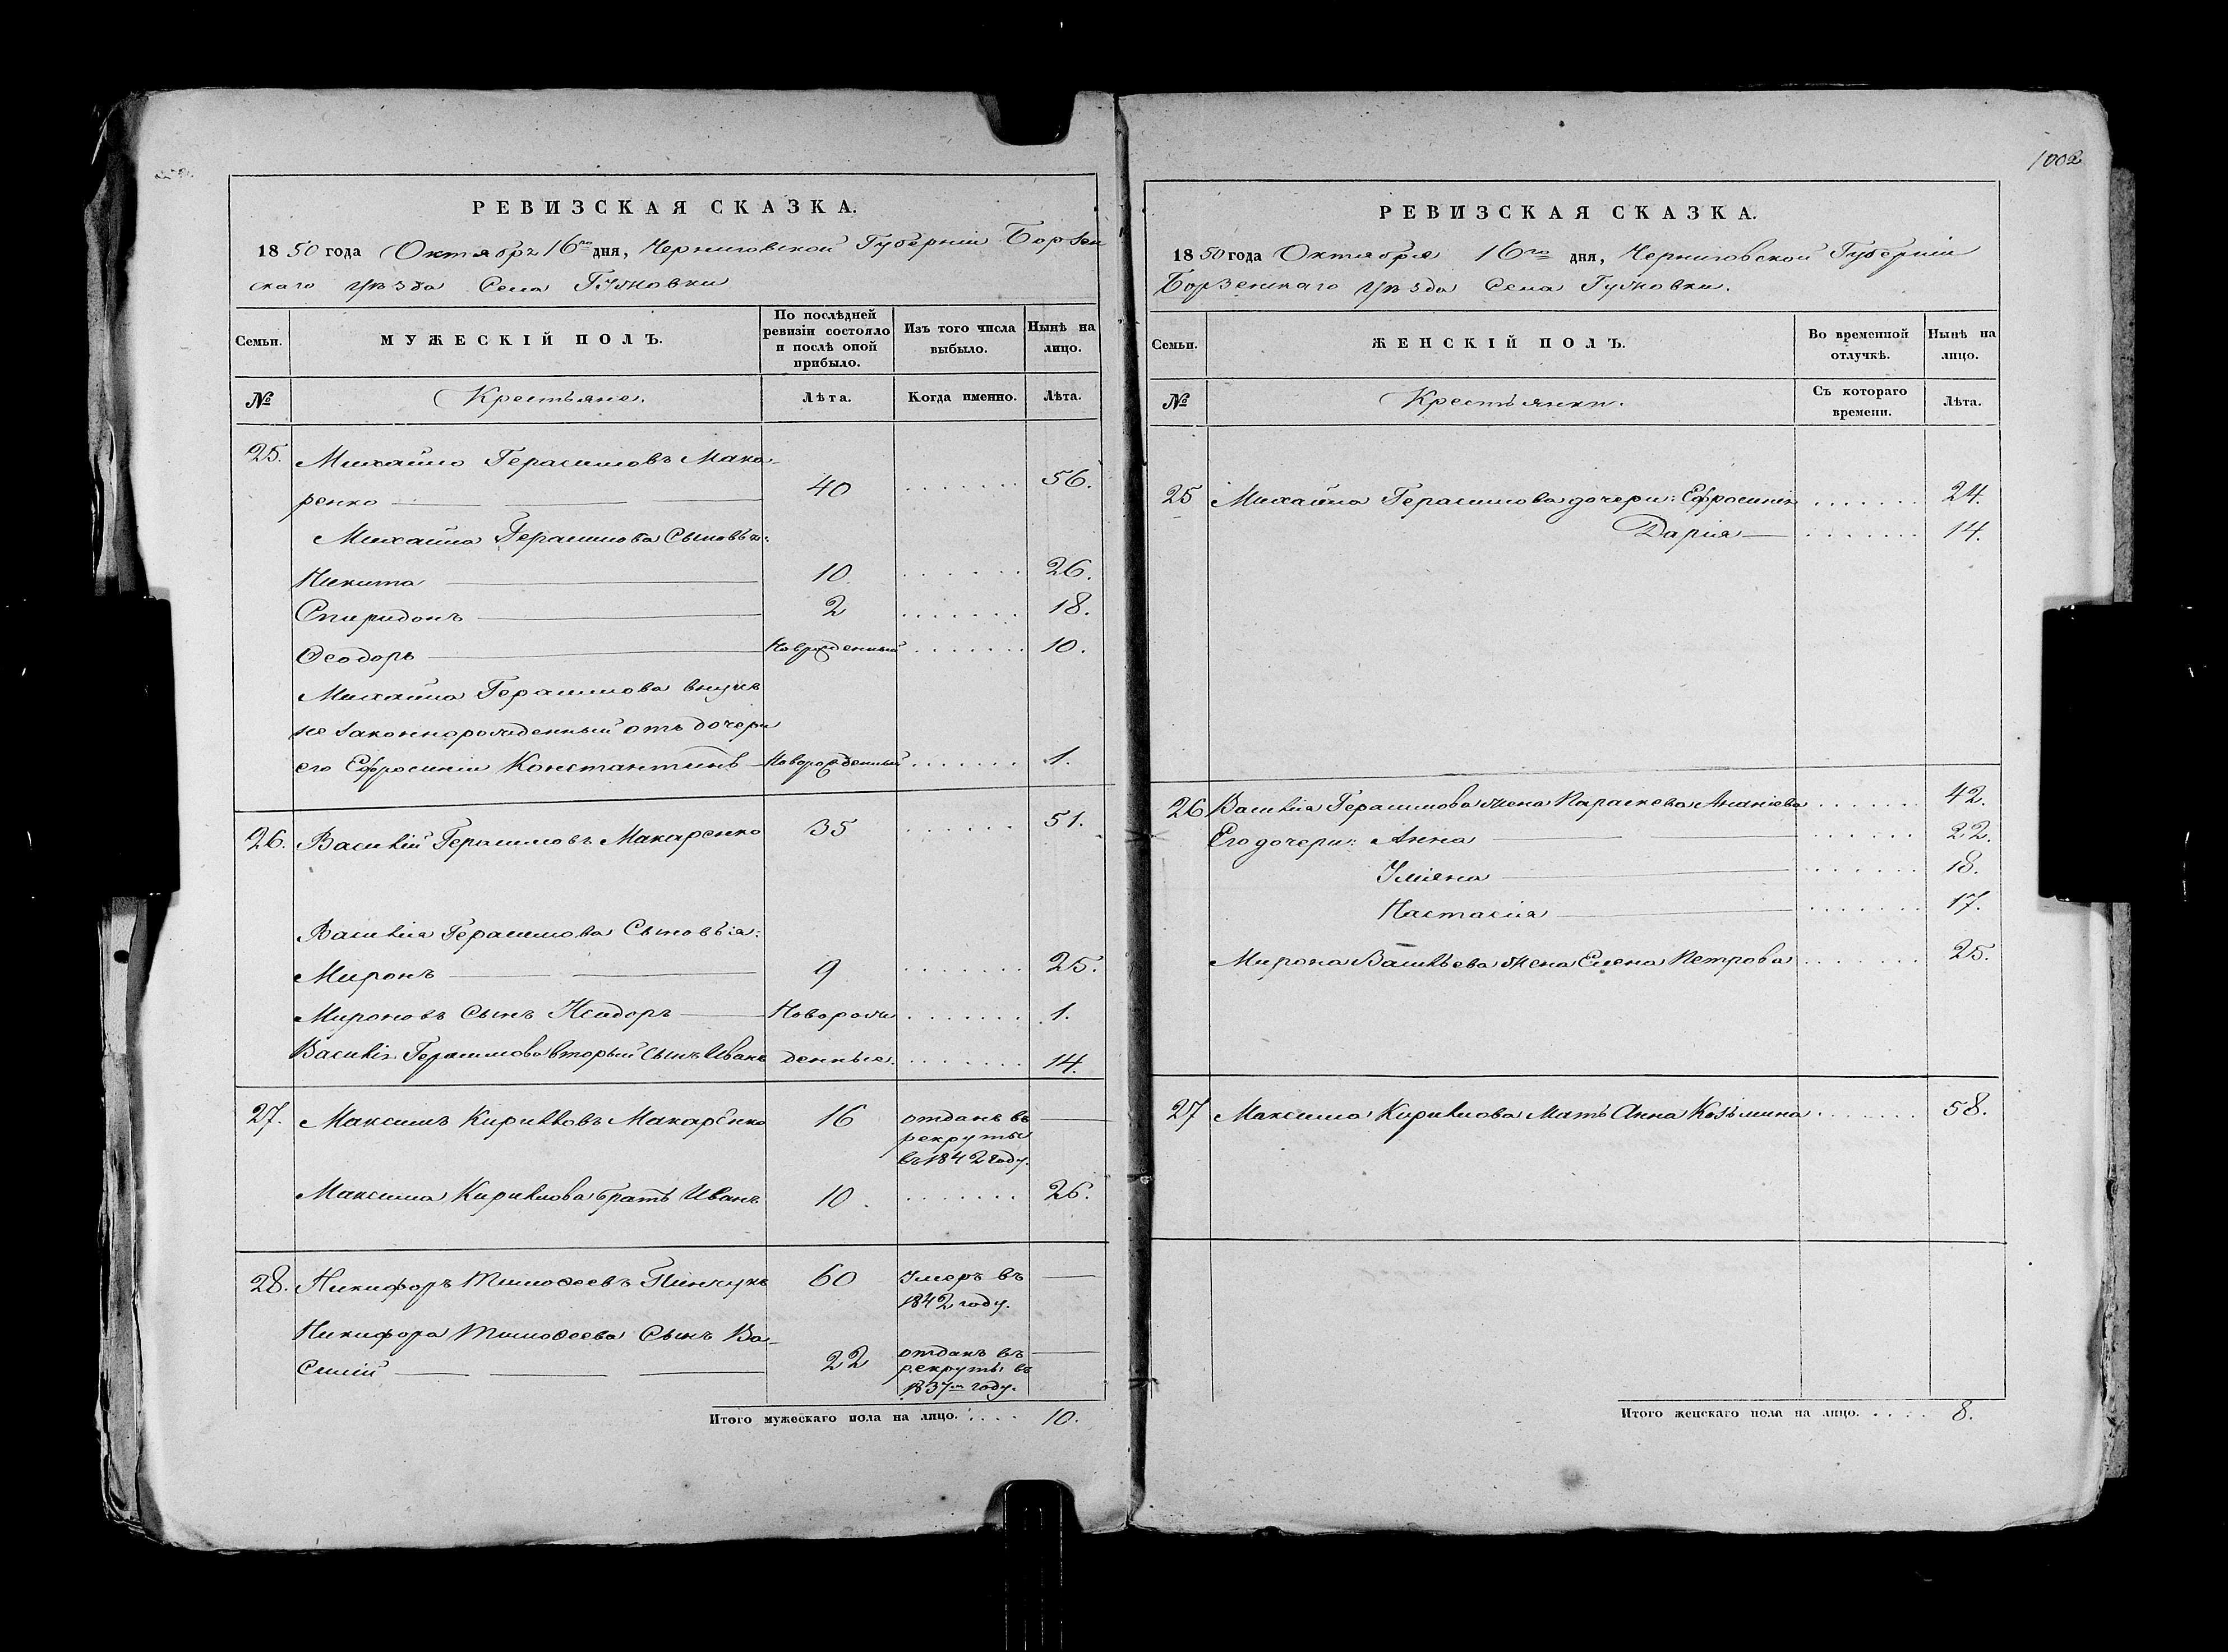 РЕВИЗСКАЯ СКАЗКА.
1850 года Октября 16го дня, Черниговской Губерніи Борзен
скаго уѣзда Села
Семьи.
МУЖЕСКІЙ ПОЛЪ.
По послѣдней ревизіи состояло и послѣ оной прибыло.
Изъ того числа выбыло.
Нынѣ на лицо.
№
Крестьяне.
Лѣта.
Когда именно.
Лѣта.
25. Михайло Герасимовъ Мака-
ренко 40 56.
Михайла Герасимова Сыновья:
Никита 10 26.
Спиридонъ 2 18.
Ѳеодоръ Новрожденный 10.
Михайла Герасимова внукъ
не законнорожденный отъ дочери
его Ефросиніи Константинъ Новорожденный 1.
26. Василій Герасимовъ Макаренко 35 51.
Василія Герасимова Сыновья:
Миронъ 9 25.
Мироновъ Сынъ Исидоръ Новорож 1.
Василія Герасимова вторый сынъ Иванъ денные. 14.
27. Максимъ Кириловъ Макаренко 16 отданъ въ
рекруты
въ 1842 году.
Максима Кирилова братъ Иванъ 10. 26.
28. Никифоръ Тимоѳеевъ Пинчукъ 60 Умеръ въ
1842 году.
Никифора Тимоѳеева Сынъ Ва-
силій 22 отданъ въ
рекруты въ
1837м году.
Итого мужескаго пола на лицо. 10.
1002
РЕВИЗСКАЯ СКАЗКА.
1850 года Октября 16го дня, Черниговской Губерніи
Борзенскаго уѣзда Села
Семьи.
ЖЕНСКІЙ ПОЛЪ.
Во временной отлучкѣ.
Нынѣ на лицо.
№
Крестьянки.
Съ котораго времени.
Лѣта.
25 Михайла Герасимова дочери: Ефросинія 24.
Дарія 14.
26 Василія Герасимова жена Параскева Ананіева 42.
Его дочери: Анна 22.
Уліяна 18.
Настасія 17.
Мирона Васильева жена Елена Петрова 25.
27 Максима Кирилова Мать Анна Козьмина 58.
Итого женскаго пола на лицо. 8.